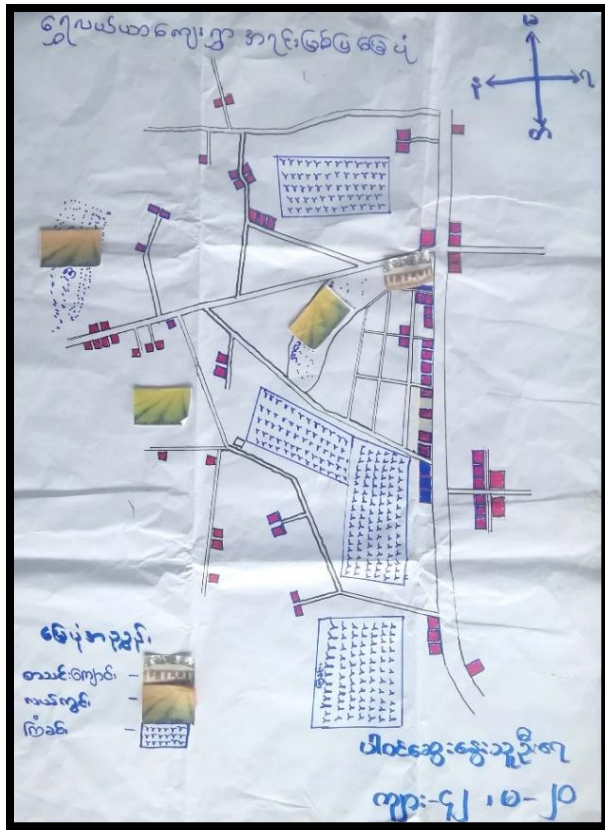 ရွှေလယ်ယာကျေးရွာ အရင်းမြစ်ပြမြေပုံ
မြေပုံအညွှန်း
စာသင်ကျောင်း -
လယ်ကွင်း -
ကြံခင်း -
ပါဝင်ဆွေးနွေးသူဦးရေ
ကျား-၄၂ ၊ မ-၂၀